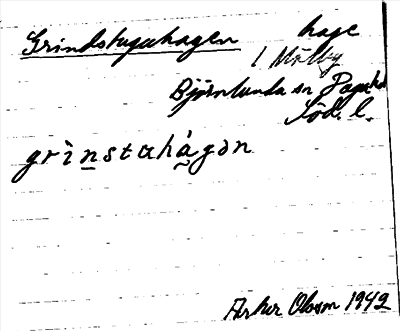 Grindstuguhagen hage
1 Mälby
Björnlunda sn Daga hd
Söd. l.
grìn̲stʉhá̰gən
Olsson 1942